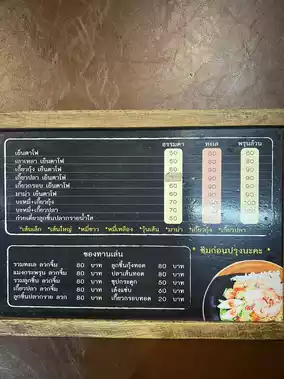 ธรรมดา ทะเล พรุนล้วน
เย็นตาโฟ 50 60
เกาเหลา เย็นตาโฟ 60
เกี๊ยวกุ้ง เย็นตาโฟ 60
เกี๊ยวปลา เย็นตาโฟ
เกี๊ยวกรอบ เย็นตาโฟ 60
มาม่า เย็นตาโฟ 60
บะหมี่+เกี๊ยวกุ้ง 70
บะหมี่+เกี๊ยวปลา 70
ก๋วยเตี๋ยวลูกชิ้นปลากรายน้ำใส 50
*เส้นเล็ก *เส้นใหญ่ *หมี่ขาว *หมี่เหลือง *วุ้นเส้น *มาม่า *เกี๊ยวกุ้ง *เกี๊ยวปลา
ของทานเล่น
* ชิมก่อนปรุงนะคะ *
รวมทะเล ลวกจิ้ม 80 บาท ลูกชิ้นกุ้งทอด 80 บาท
แมงกะพรุน ลวกจิ้ม 80 บาท ปลาเส้นทอด 80 บาท
รวมลูกชิ้น ลวกจิ้ม 80 บาท ซุปกระดูก 50 บาท
เกี๊ยวปลา ลวกจิ้ม 80 บาท เล้งแซ่บ 60 บาท
ลูกชิ้นปลากราย ลวก 80 บาท เกี๊ยวกรอบทอด 20 บาท